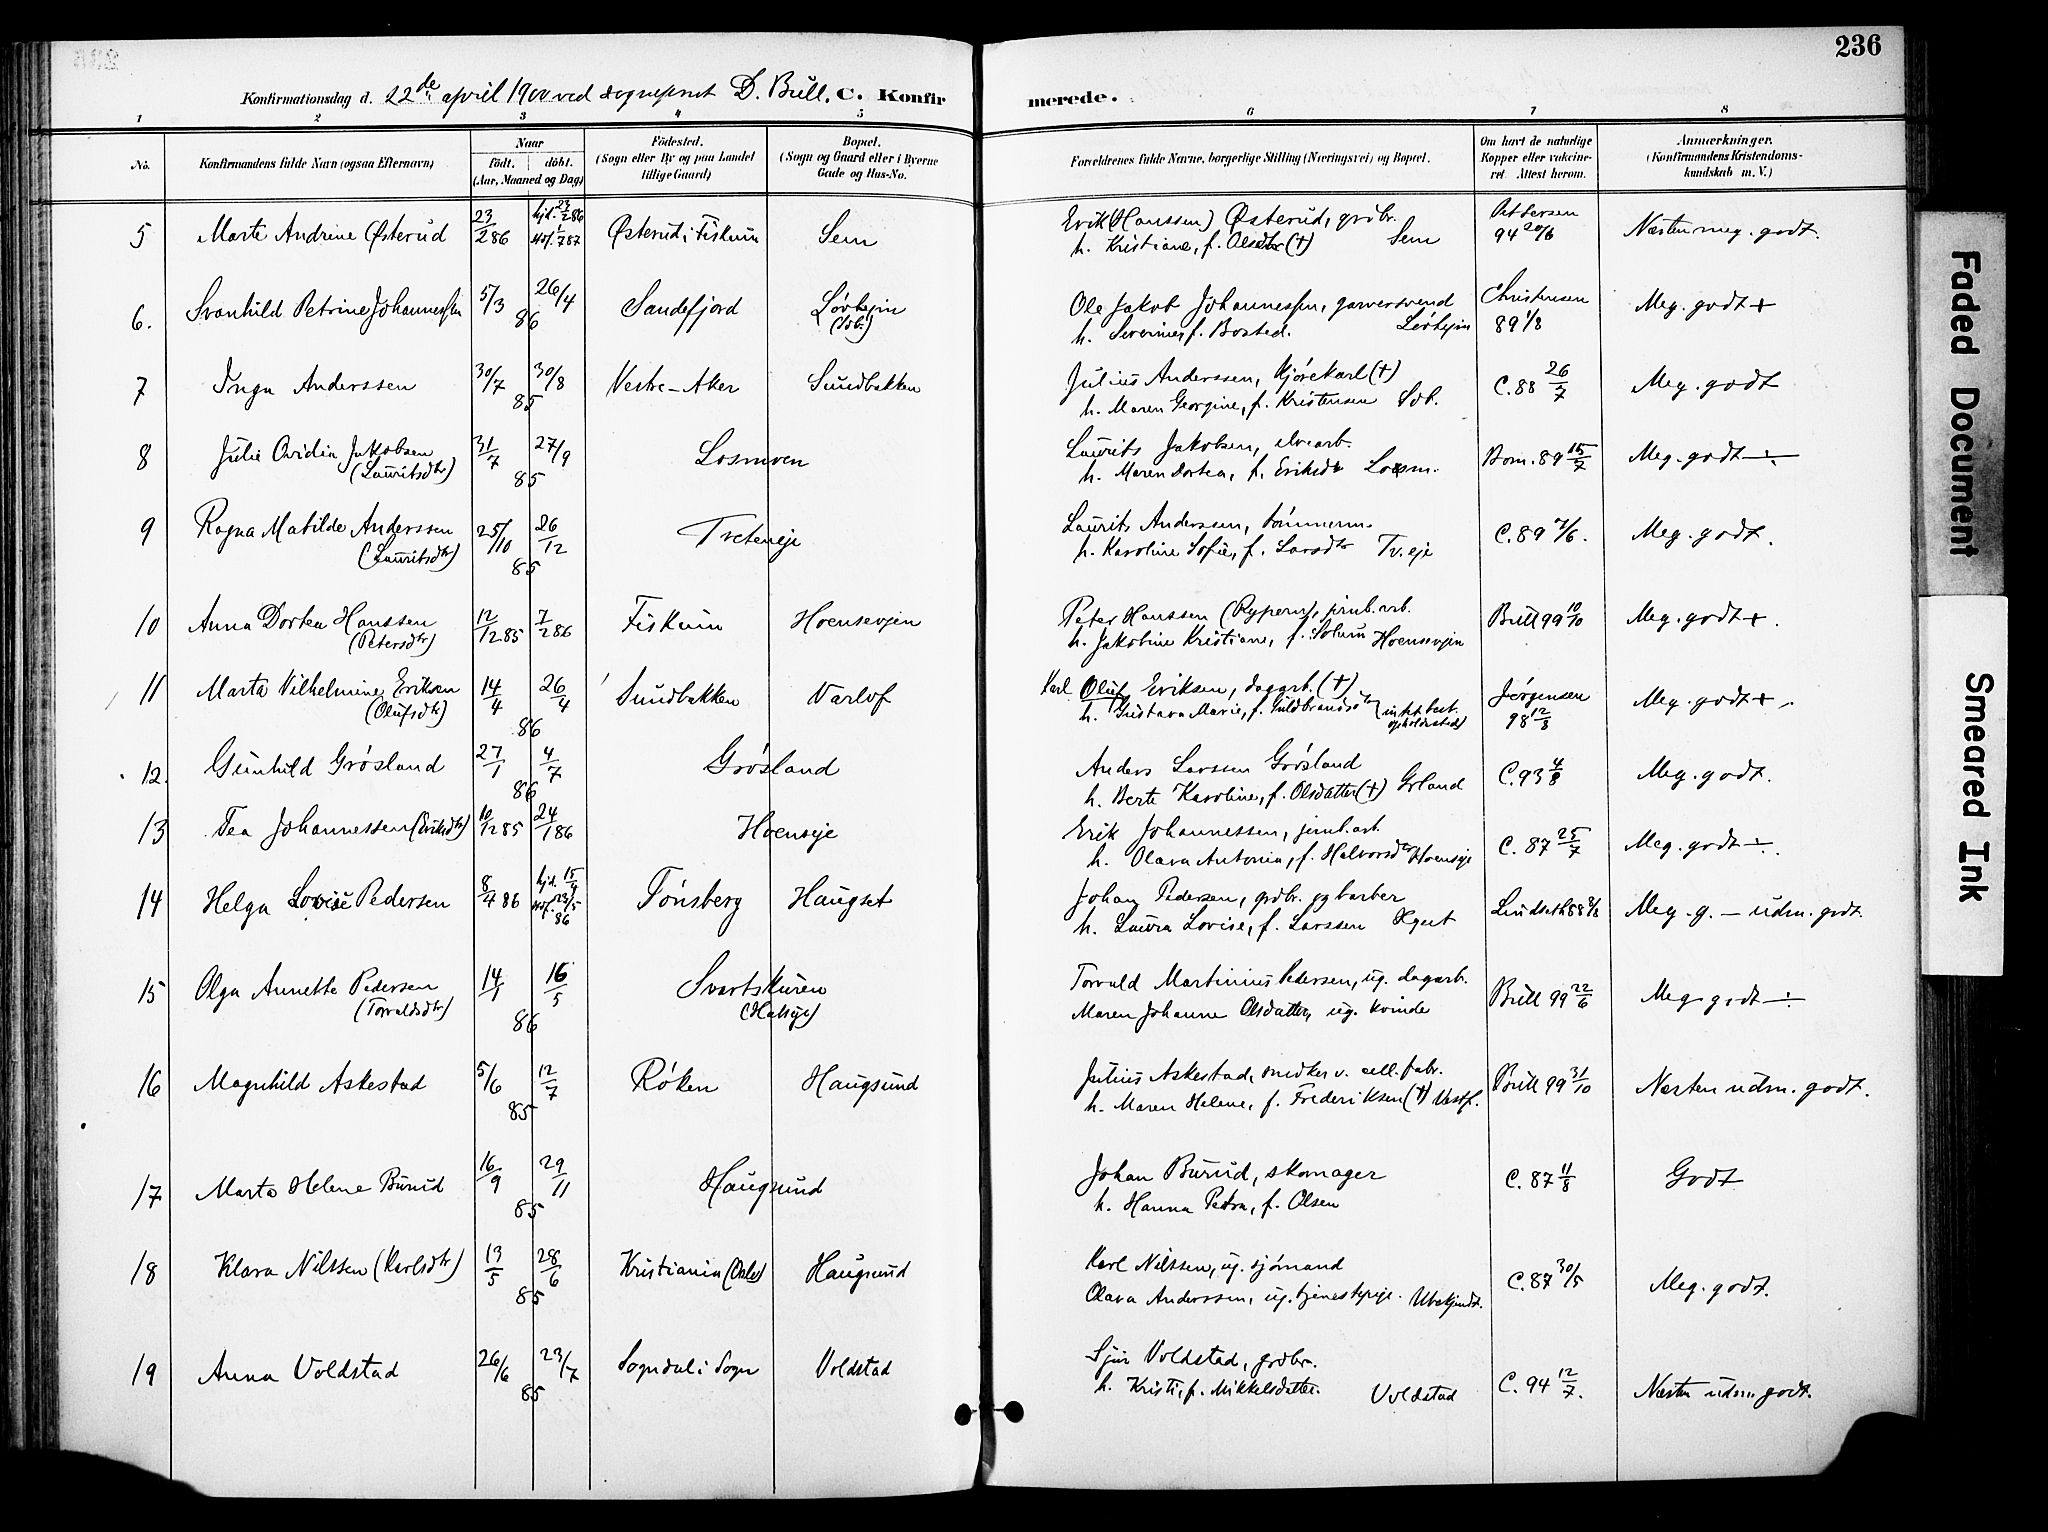 236
Konfirmationsdag d. 22de april 1900 ved sogneprest D. Bull. C. Konfirmerede.
1 2 3 4 5 6 7 8
No. Konfirmandens fulde Navn (ogsaa Efternavn) Naar födt. döbt. (Aar, Maaned og Dag) Födested. (Sogn eller By og paa Landet tillige Gaard) Bopæl. (Sogn og Gaard eller i Byerne Gade og Hus-No. Forældrenes fulde Navne, borgerlige Stilling (Næringsvei) og Bopæl. Om havt de naturlige Kopper eller vaccineret. Attest herom. Anmærkninger. (Konfirmandens Kristendomskundskab m. V.)
5 Marte Andrine Østerud 23/2 86 hjd. 23/2 86 Østerud i Fiskum Sem Erik (Hanssen) Østerud, grdbr. Pettersen Næsten meg. godt.
h. Kristiane, f. Olsdtr (†) Sem 94 20/6
6. Svanhild Petrine Johannessen 5/3 26/4 86 Sandefjord Løvhejin Ole Jakob Johannessen, garversvend Christensen Meg. godt +
h. Severine, f. Bosted. Løvhejin 89 1/8
7 Inga Anderssen 30/7 30/8 85 Vestre-Aker Sundbakken Julius Anderssen, kjørekarl (†) C. 88 26/7 Meg. godt
h. Maren Georgine, f. Kristensen Sdb.
8 Julie Ovidia Jakobsen 31/7 27/9 85 Losmoen Laurits Jakobsen, elvearb. Bom. 89 15/7 Meg. godt ÷
(Lauritsdtr) h. Maren Dortea, f. Eriksdtr Losm.
9 Ragna Matilde Anderssen 25/10 26/12 85 Tveteneje Laurits Anderssen, tømmerm. C. 89 7/6. Meg. godt.
(Lauritsdtr) h. Karoline Sofie, f. Larsdtr Tv. eje
10 Anna Dortea Hanssen 12/12 85 7/2 86 Fiskum Hoensvejen Peter Hanssen (Rypern), jernb. arb. Bull 99 10/10 Meg. godt +.
(Petersdtr) h. Jakobine Kristiane, f. Solum Hoensvejin
11 Marta Vilhelmine Eriksen 14/4 26/4 86 Sundbakken Varlof Karl Oluf Eriksen, dagarb. (†) Jørgensen Meg. godt +.
(Olufsdtr) h. Gustava Marie, f. Guldbrandsdtr opholdssted) 98 12/8
12. Gunhild Grøsland 27/1 4/7 86 Grøsland Anders Larssen Grøsland C. 93 4/8 Meg. godt.
h. Berte Karoline, f. Olsdatter (†) Grland
13 Tea Johannessen (Eriksdtr) 10/12 85 24/1 86 Hoenseje Erik Johannessen, jernb. arb. C. 87 25/7 Meg. godt ÷.
h. Olava Antonia, f. Halvorsdtr Hoenseje
14 Helga Lovise Pedersen 8/4 86 hjd. 15/4 23/5 86 Tønsberg Haugset Johan Pedersen, grdbr. og barber Lindseth 88 8/8 Meg. g. – udm. godt.
h. Laura Lovise, f. Larssen
15 Olga Annette Pedersen 14/1 16/5 86 Svartskuren Torvald Martinius Pedersen, ug. dagarb. Bull 99 22/6 Meg. godt ÷
(Torvaldsdtr) Maren Johanne Olsdatter, ug. kvinde
16 Magnhild Askestad 5/6 12/7 85 Røken Haugsund Julius Askestad, snedker v. cell. fabr. Bull 99 31/10 Næsten udm. godt.
h. Maren Helene, f. Frederiksen (†) Vestf.
17 Marta Helene Burud 16/9 29/11 85 Haugsund Johan Burud, skomager C. 87 11/8 Godt
h. Hanna Petra, f. Olsen
18 Klara Nilssen (Karlsdtr) 13/5 28/6 85 Kristiania (Oslo) Haugsund Karl Nilssen, ug. sjømand C. 87 30/5 Meg. godt.
Olava Anderssen, ug. tjenestepige. Ubekjendt.
19 Anna Voldstad 26/6 23/7 85 Sogndal i Sogn Voldstad Sjur Voldstad, grdbr. C. 94 12/7. Næsten udm. godt.
h. Kristi, f. Mikkelsdatter. Voldstad
Faded Document
Smeared Ink